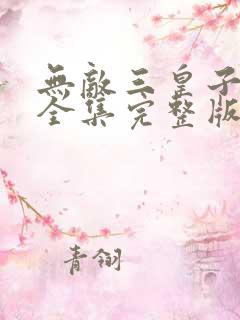 無敵三皇子
全集完整版
青翎